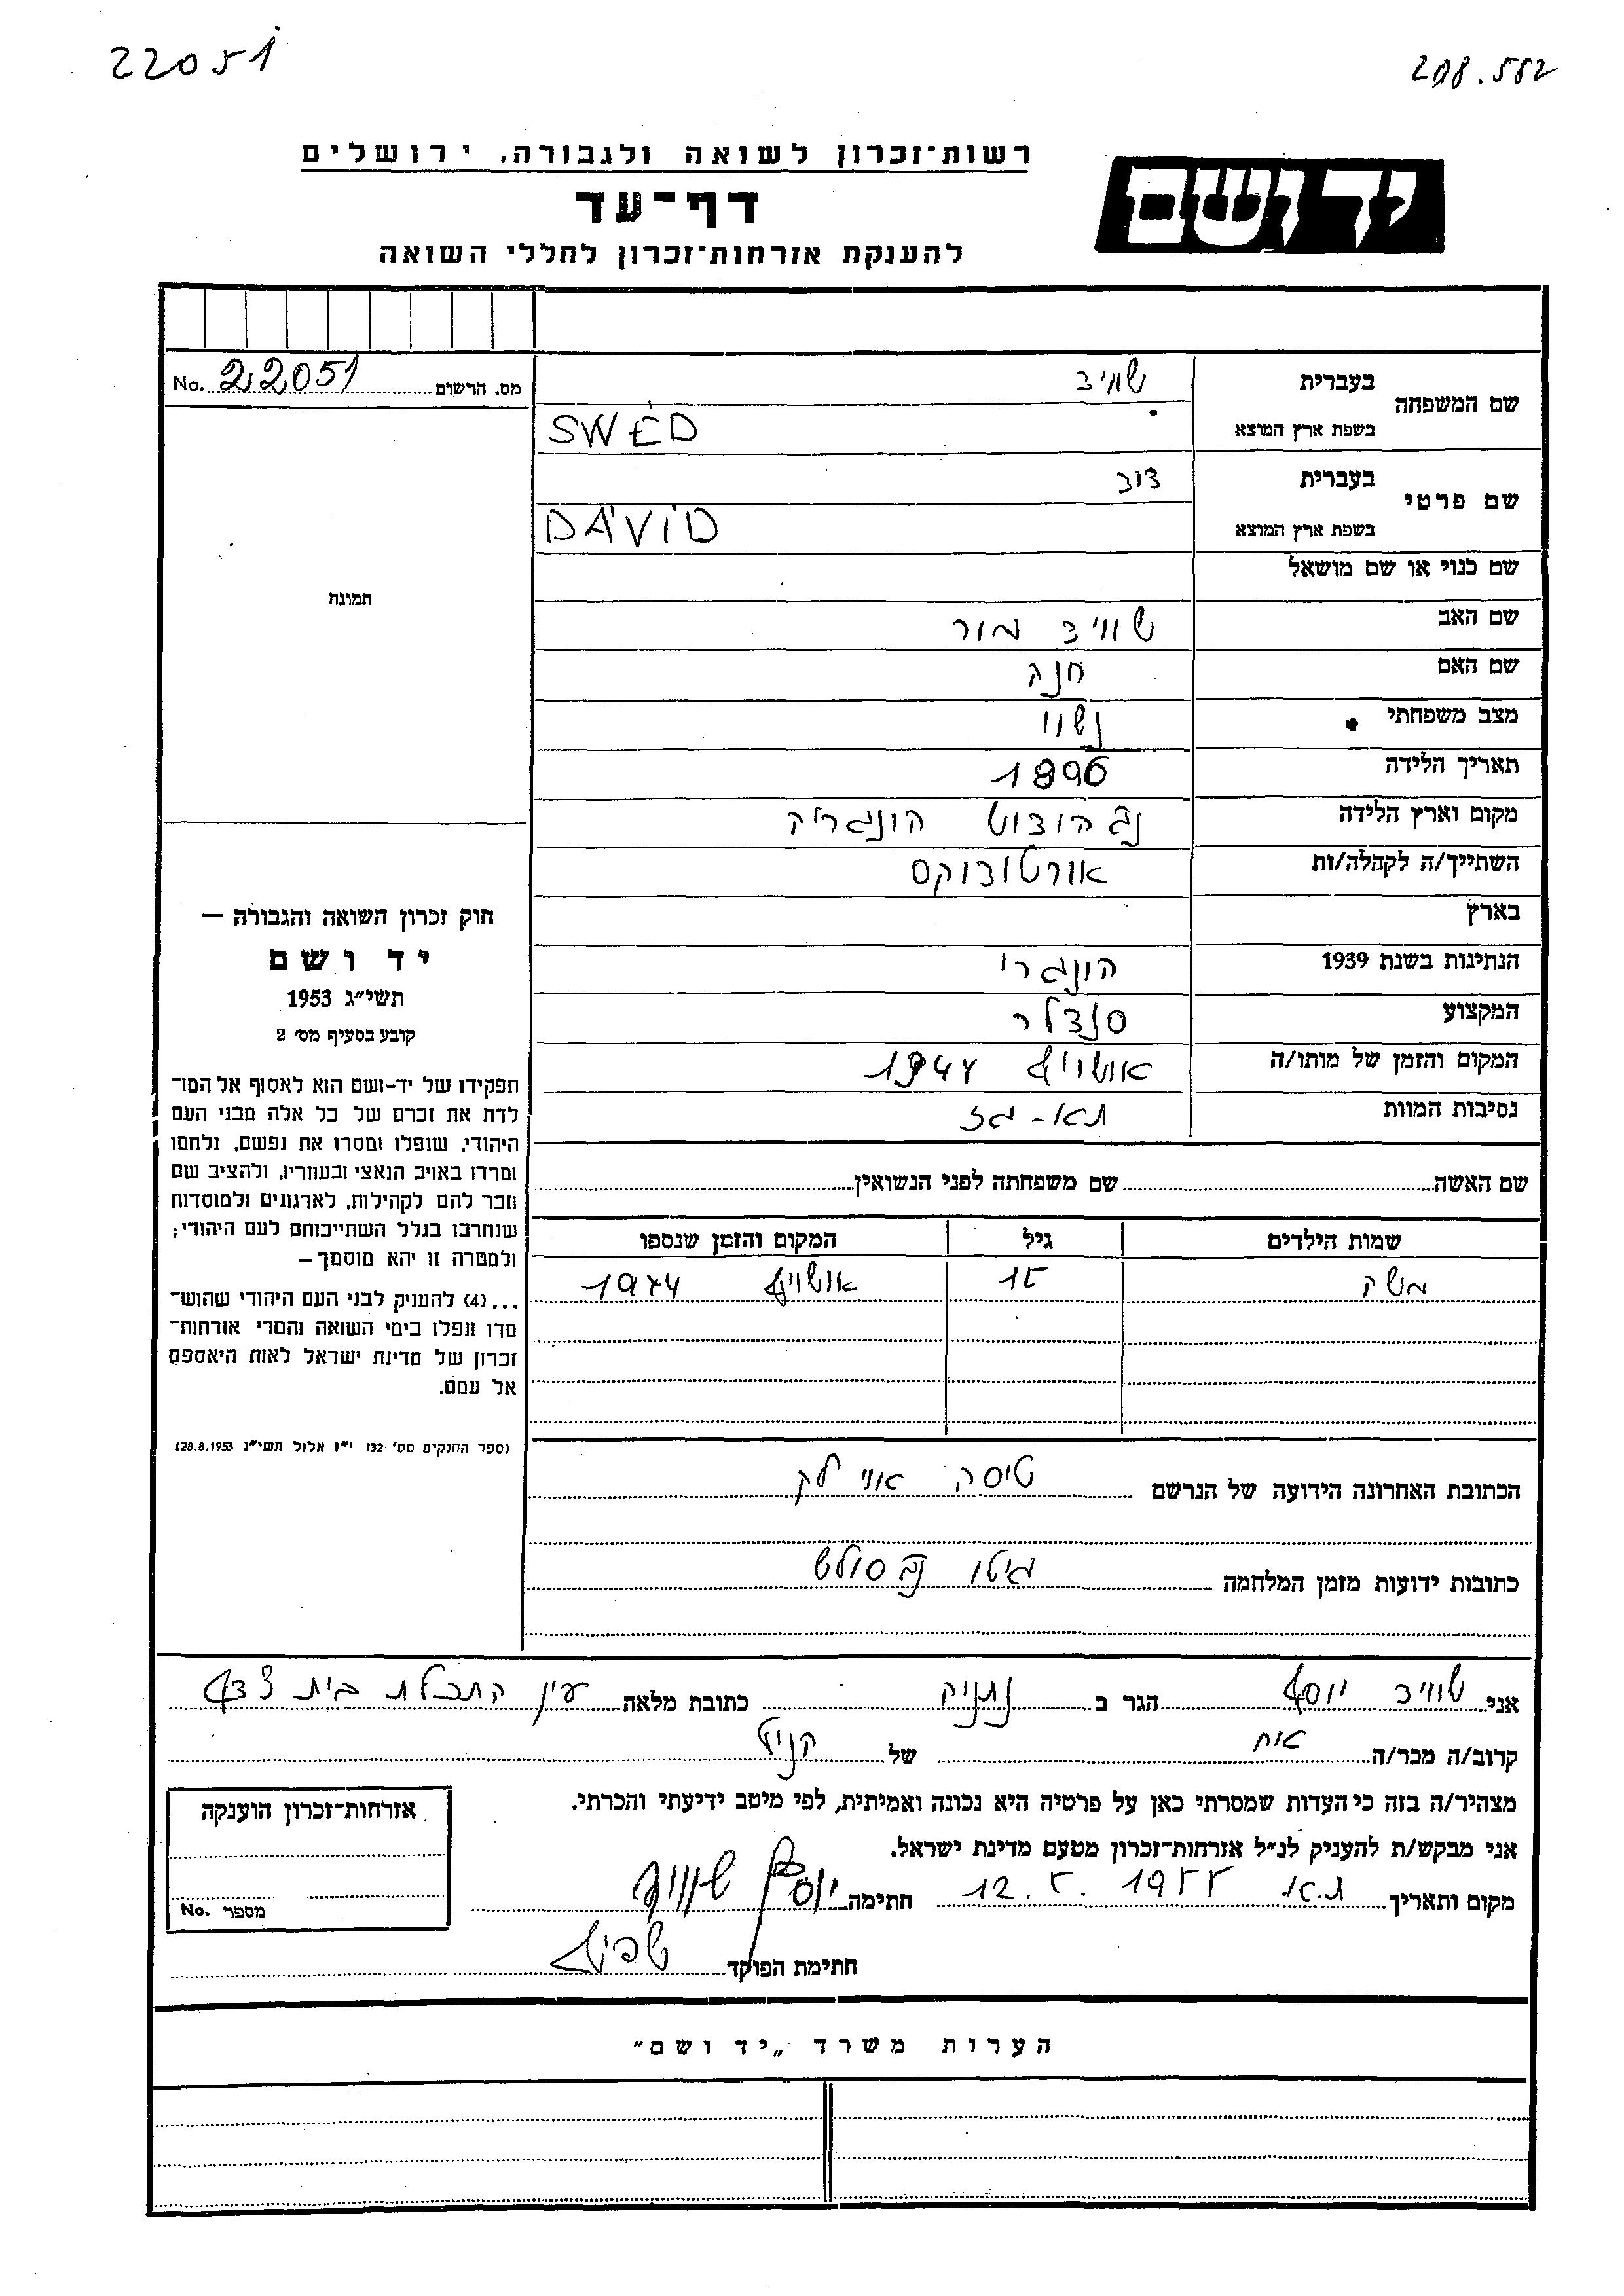 22051
208.582
רשות־זכרון לשואה ולגבורה, ירושלים
יד ושם
דף־עד
להענקת אזרחות־זכרון לחללי השואה
מס. הרשום 22051 No.
שם המשפחה
בעברית שוויד
בשפת ארץ המוצא SWED
שם פרטי
בעברית דוד
בשפת ארץ המוצא DAVID
שם כנוי או שם מושאל
שם האב שוויד מור
שם האם חנה
מצב משפחתי נשוי
תאריך הלידה 1896
מקום וארץ הלידה הונגריה
השתייך/ה לקהלה/ות אורטודוקס
בארץ
הנתינות בשנת 1939 הונגרי
המקצוע סנדלר
המקום והזמן של מותו/ה אושויץ 1944
נסיבות המוות תא-גז
שם האשה שם משפחתה לפני הנשואין
שמות הילדים גיל המקום והזמן שנספו
משה 15 אושויץ 1944
הכתובת האחרונה הידועה של הנרשם טיסה
כתובות ידועות מזמן המלחמה גיטו
תמונה
חוק זכרון השואה והגבורה —
יד ושם
תשי״ג 1953
קובע בסעיף מס׳ 2
תפקידו של יד-ושם הוא לאסוף אל המו־
לדת את זכרם של כל אלה מבני העם
היהודי, שנפלו ומסרו את נפשם, נלחמו
ומרדו באויב הנאצי ובעוזריו, ולהציב שם
וזכר להם לקהילות, לארגונים ולמוסדות
שנחרבו בגלל השתייכותם לעם היהודי;
ולמטרה זו יהא מוסמך —
...(4) להעניק לבני העם היהודי שהוש־
מדו ונפלו בימי השואה והמרי אזרחות־
זכרון של מדינת ישראל לאות היאספם
אל עמם.
(ספר החוקים מס׳ 132 י״ז אלול תשי״ג 28.8.1953)
אני שוויד יוסף הגר ב נתניה כתובת מלאה עין התכלת בית
קרוב/ה מכר/ה אח של הנ״ל
מצהיר/ה בזה כי העדות שמסרתי כאן על פרטיה היא נכונה ואמיתית, לפי מיטב ידיעתי והכרתי.
אני מבקש/ת להעניק לנ״ל אזרחות־זכרון מטעם מדינת ישראל.
מקום ותאריך ת.א. 12.5.1955 חתימה יוסף שוויד
חתימת הפוקד
אזרחות־זכרון הוענקה
מספר No.
הערות משרד „יד ושם״